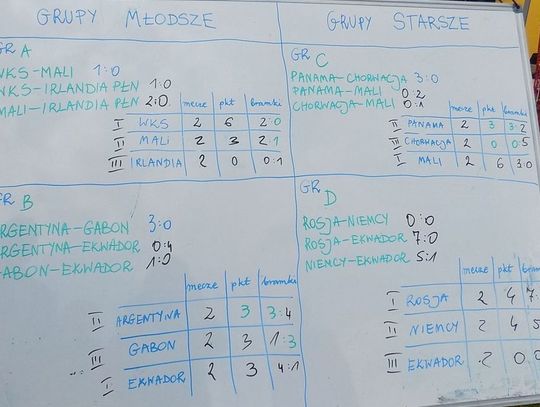 GRUPY MŁODSZE
GR A
WKS-MALI 1:0
WKS-IRLANDIA PŁN 1:0
MALI-IRLANDIA PŁN 2:0
mecze pkt bramki
I WKS 2 6 2:0
II MALI 2 3 2:1
III IRLANDIA 2 0 0:1
GR B
ARGENTYNA-GABON 3:0
ARGENTYNA-EKWADOR 0:4
GABON-EKWADOR 1:0
mecze pkt bramki
II ARGENTYNA 2 3 3:4
III GABON 2 3 1:3
I EKWADOR 2 3 4:1
GRUPY STARSZE
GR C
PANAMA-CHORWACJA 3:0
PANAMA-MALI 0:2
CHORWACJA-MALI 0:1
mecze pkt bramki
II PANAMA 2 3 3:2
III CHORWACJA 2 0 0:5
I MALI 2 6 3:0
GR D
ROSJA-NIEMCY 0:0
ROSJA-EKWADOR 7:0
NIEMCY-EKWADOR 5:1
mecze pkt bramki
I ROSJA 2 4 7:
II NIEMCY 2 4 5
III EKWADOR 2 0 0